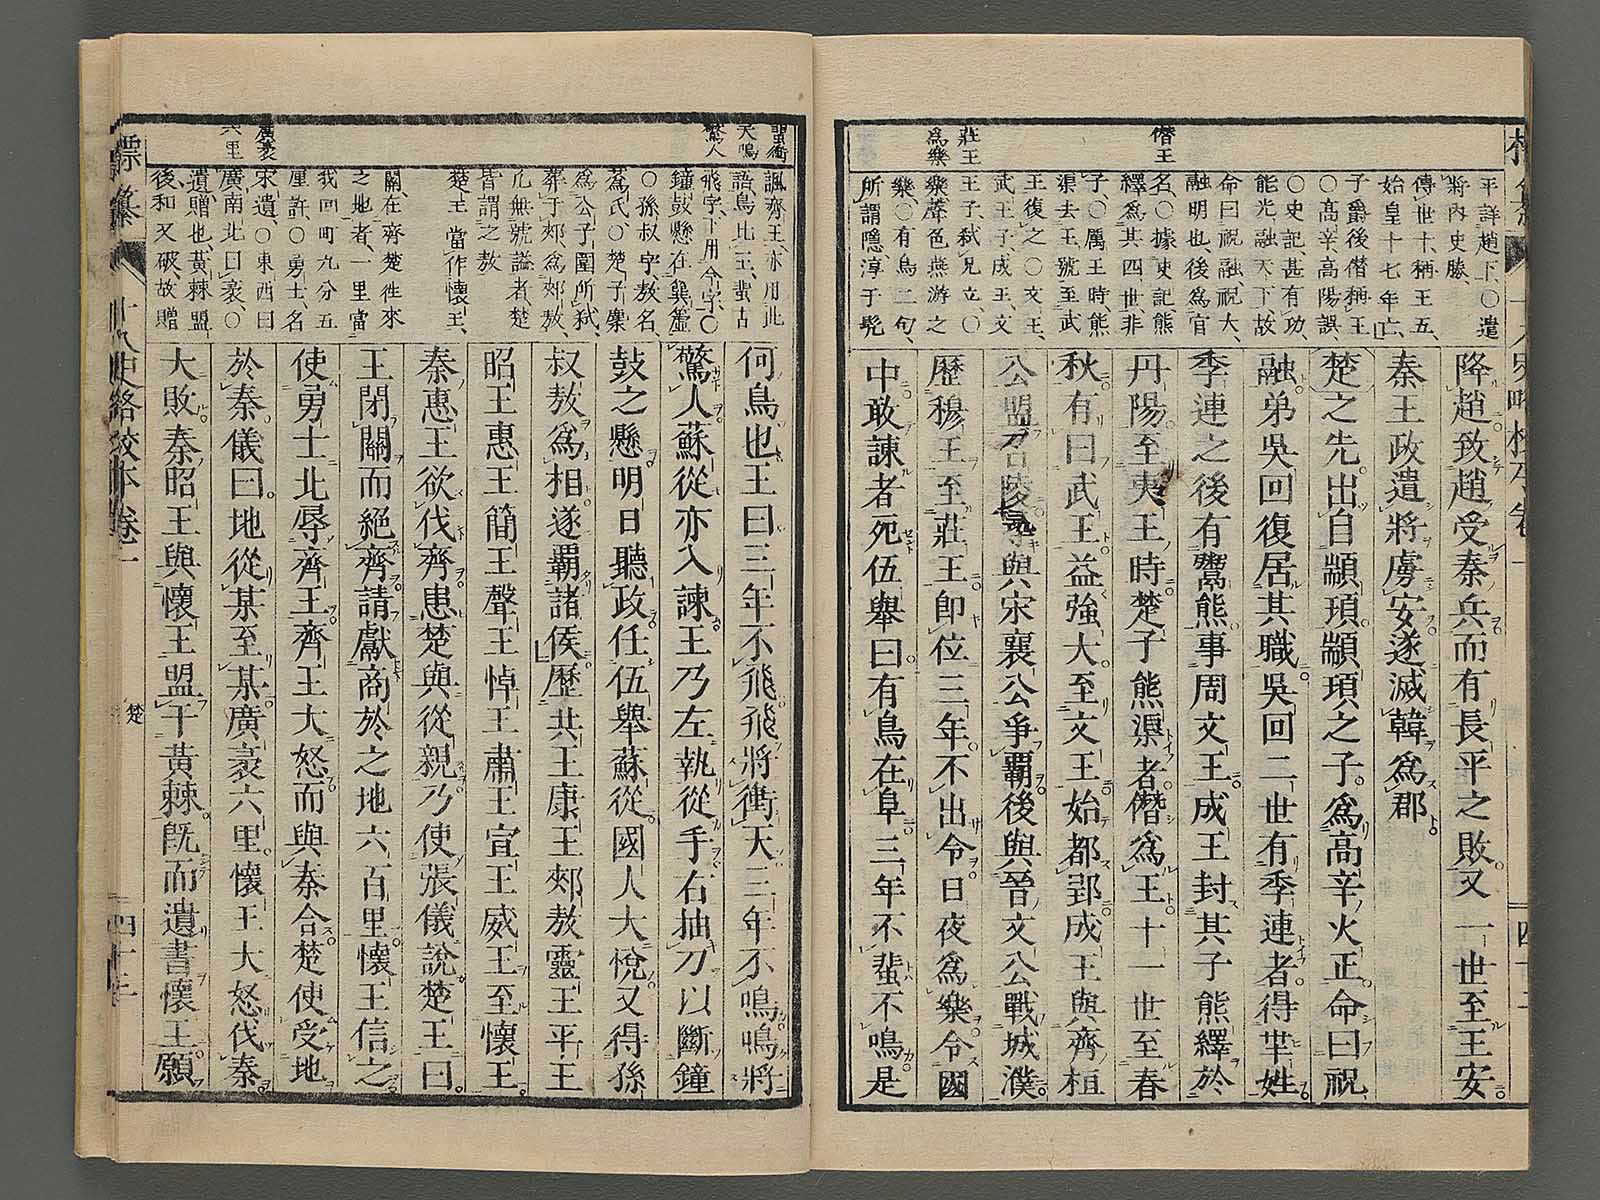 僭王
莊王
爲樂
平詳趙下、〇遣
將內史滕、
傳世十、稱王五、
始皇十七年亡、
子爵後僭稱王
〇高辛高陽誤、
〇史記、甚有功、
能光融天下、故
命曰祝融、祝大、
融明也、後爲官
名、〇據史記熊
繹爲其四世、非
子、〇厲王時、熊
渠去王號、至武
王復之、〇文王、
武王子、成王、文
王子、弑兄立、〇
樂聲色燕游之
樂、〇有鳥二句、
所謂隱、淳于髠
降趙致趙受秦兵而有長平之敗又一世至王安
秦王政遣將虜安遂滅韓爲郡
楚之先出自顓頊顓頊之子爲高辛火正命曰祝
融弟吳回復居其職吳回二世有季連者得芈姓
季連之後有鬻熊事周文王成王封其子熊繹於
丹陽至夷王時楚子熊渠者僭爲王十一世至春
秋有曰武王益強大至文王始都郢成王與齊桓
公盟召陵與宋襄公爭覇後與晉文公戰城濮
歷穆王至莊王卽位三年不出令日夜爲樂令國
中敢諫者死伍舉曰有鳥在阜三年不蜚不鳴是
聖衝
天鳴
驚人
廣袤
六里
諷齊王、亦用此
語、鳥比王、蜚古
飛字、下用令字、〇
鐘鼓懸在簨簴
〇孫叔字、敖名
蒍氏、〇楚子麇
爲公子圍所弑、
葬于郟、爲郟敖、
凡無號謚者、楚
皆謂之敖
楚王當作懷王、
關、在齊楚徃來
之地者、一里當
我四町九分五
厘許、〇勇士、名
宋遺、〇東西曰
廣、南北曰袤、〇
遺、贈也、黃棘盟
後、和又破、故贈
何鳥也王曰三年不飛飛將衝天三年不鳴鳴將
驚人蘇從亦入諫王乃左執從手右抽刀以斷鐘
鼓之懸明日聽政任伍舉蘇從國人大悅又得孫
叔敖爲相遂覇諸侯歷共王康王郟敖靈王平王
昭王惠王簡王聲王悼王肅王宣王威王至懷王
秦惠王欲伐齊患楚與從親乃使張儀說楚王曰
王閉關而絕齊請獻商於之地六百里懷王信之
使勇士北辱齊王齊王大怒而與秦合楚使受地
於秦儀曰地從某至某廣袤六里懷王大怒伐秦
大敗秦昭王與懷王盟于黃棘旣而遺書懷王願
標纂
十八史略校本卷一
楚
四十三